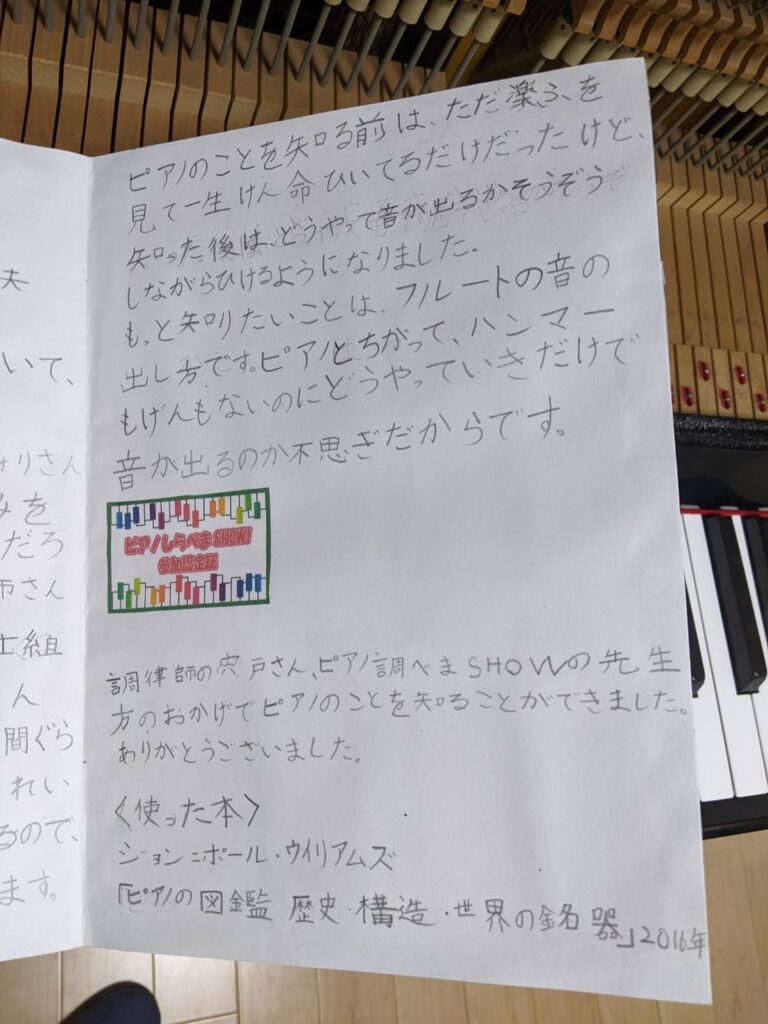 夫
いて、
りさん
みを
だろ
市さん
士組
ん
間ぐら
れい
るので、
ます。
ピアノのことを知る前は、ただ楽ふを
見て一生けん命ひいてるだけだったけど、
知った後は、どうやって音が出るかそうぞう
しながらひけるようになりました。
もっと知りたいことは、フルートの音の
出し方です。ピアノとちがって、ハンマー
もげんもないのにどうやっていきだけで
音が出るのか不思ぎだからです。
ピアノしらべまSHOW!
参加認定証
調律師の宍戸さん、ピアノ調べまSHOWの先生
方のおかげでピアノのことを知ることができました。
ありがとうございました。
〈使った本〉
ジョン=ポール・ウイリアムズ
「ピアノの図鑑 歴史・構造・世界の銘器」2016年